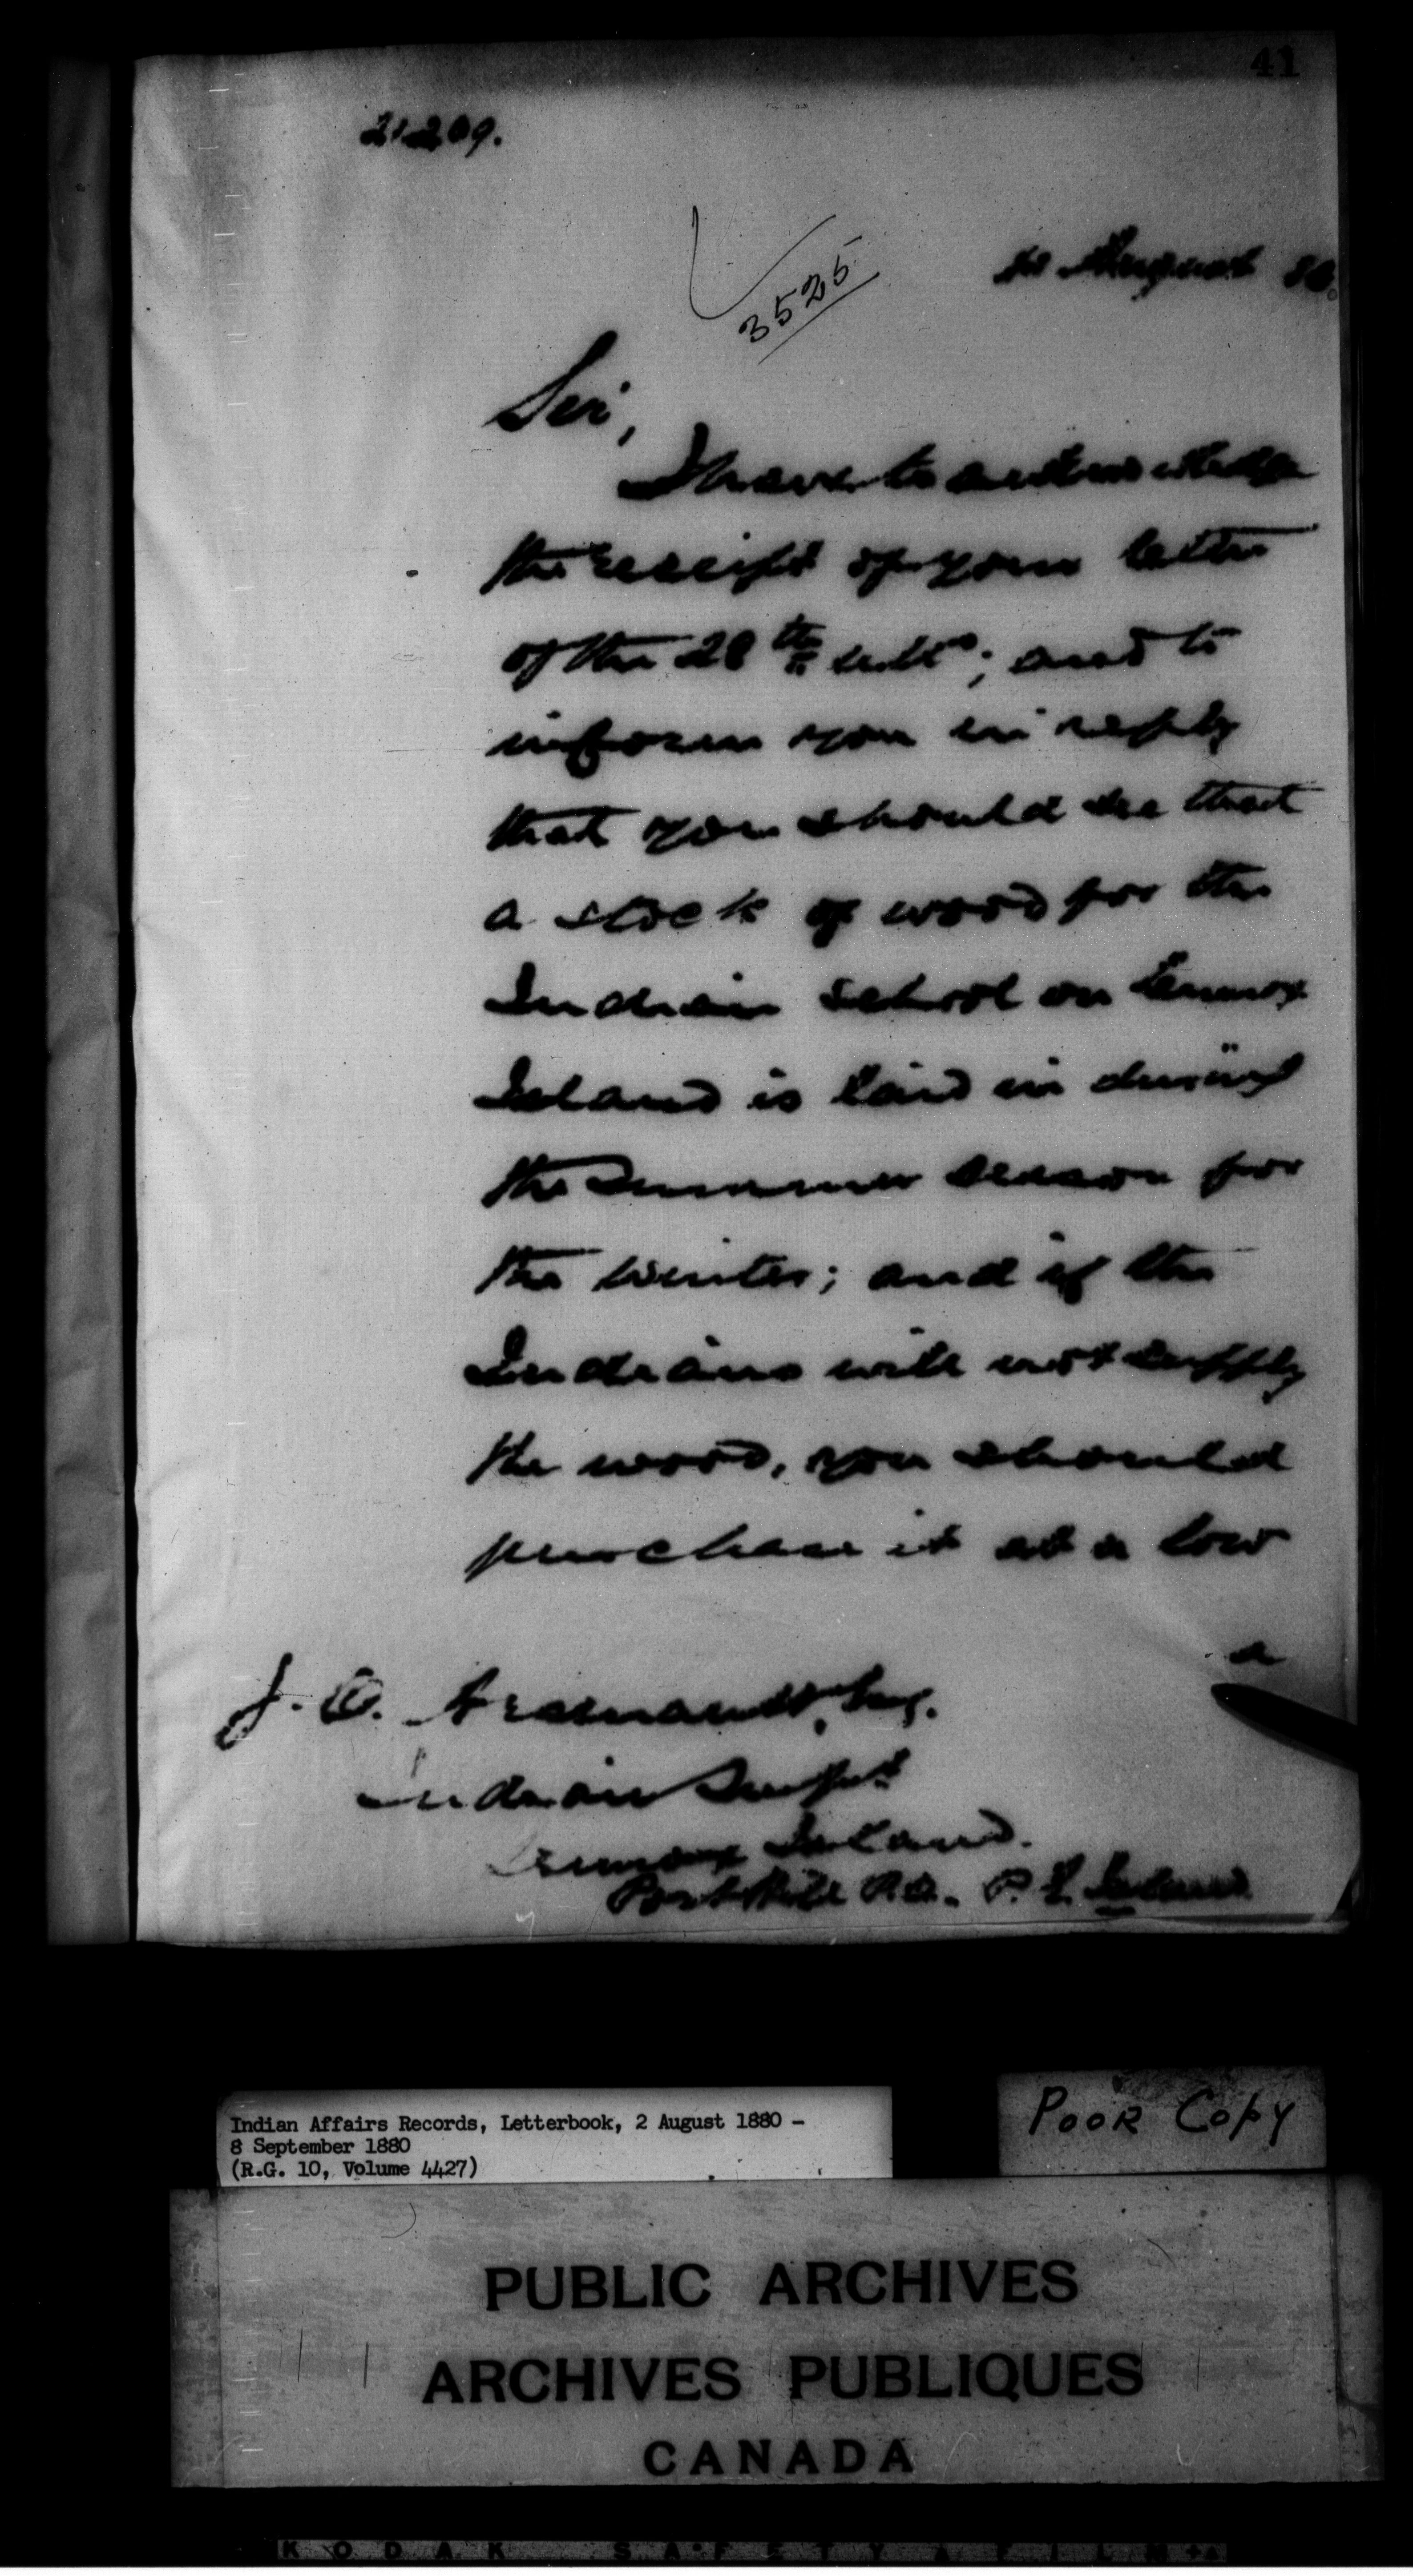 41
21209.
August 80.
3525
Sir,
I have to acknowledge
the receipt of your letter
of the 28th ulto; and to
inform you in reply
that you should see that
a stock of wood for the
Indian School on Lennox
Island is laid in during
the Summer season for
the Winter; and if the
Indians will not supply
the wood, you should
purchase it at a low
a
J. O. Arsenault, Esq.
Indian Supt
Lennox Island.
Port Hill P.O. P. E. Island
Indian Affairs Records, Letterbook, 2 August 1880 –
8 September 1880
(R.G. 10, Volume 4427)
POOR COPY
PUBLIC ARCHIVES
ARCHIVES PUBLIQUES
CANADA
KODAK SAFETY FILM